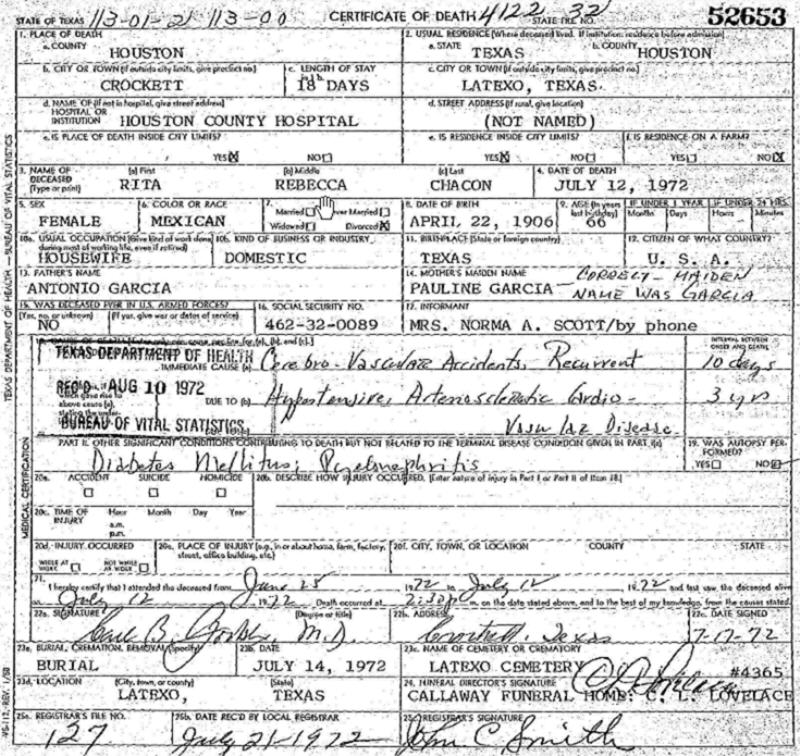 STATE OF TEXAS 113-01-21 113-00 CERTIFICATE OF DEATH 4122 STATE FILE NO. 32 52653
1. PLACE OF DEATH
a. COUNTY HOUSTON
2. USUAL RESIDENCE (Where deceased lived. If institution: residence before admission)
a. STATE TEXAS b. COUNTY HOUSTON
b. CITY OR TOWN (If outside city limits, give precinct no.) CROCKETT
c. LENGTH OF STAY 18 DAYS
c. CITY OR TOWN (If outside city limits, give precinct no.) LATEXO, TEXAS.
d. NAME OF (If not in hospital, give street address) HOSPITAL OR INSTITUTION HOUSTON COUNTY HOSPITAL
d. STREET ADDRESS (If rural, give location) (NOT NAMED)
e. IS PLACE OF DEATH INSIDE CITY LIMITS? YES☒ NO☐
e. IS RESIDENCE INSIDE CITY LIMITS? YES☒ NO☐
f. IS RESIDENCE ON A FARM? YES☐ NO☒
3. NAME OF DECEASED (Type or print)
(a) First RITA
(b) Middle REBECCA
(c) Last CHACON
4. DATE OF DEATH JULY 12, 1972
5. SEX FEMALE
6. COLOR OR RACE MEXICAN
7. Married☐ ver Married☐ Widowed☐ Divorced☒
8. DATE OF BIRTH APRIL 22, 1906
9. AGE (In years last birthday) 66
IF UNDER 1 YEAR Months Days
IF UNDER 24 HRS. Hours Minutes
10a. USUAL OCCUPATION (Give kind of work done during most of working life, even if retired) HOUSEWIFE
10b. KIND OF BUSINESS OR INDUSTRY DOMESTIC
11. BIRTHPLACE (State or foreign country) TEXAS
12. CITIZEN OF WHAT COUNTRY? U. S. A.
13. FATHER'S NAME ANTONIO GARCIA
14. MOTHER'S MAIDEN NAME PAULINE GARCIA - CORRECT - MAIDEN NAME WAS GARCIA
15. WAS DECEASED EVER IN U.S. ARMED FORCES?
(Yes, no, or unknown) NO (If yes, give war or dates of service)
16. SOCIAL SECURITY NO. 462-32-0089
17. INFORMANT MRS. NORMA A. SCOTT/by phone
TEXAS DEPARTMENT OF HEALTH
REC'D AUG 10 1972
BUREAU OF VITAL STATISTICS
INTERVAL BETWEEN ONSET AND DEATH
IMMEDIATE CAUSE (a) Cerebro-Vascular Accidents, Recurrent 10 days
DUE TO (b) Hypertensive, Arteriosclerotic Cardio- 3 yrs
Vascular Disease
PART II. OTHER SIGNIFICANT CONDITIONS CONTRIBUTING TO DEATH BUT NOT RELATED TO THE TERMINAL DISEASE CONDITION GIVEN IN PART I(a)
Diabetes Mellitus; Pyelonephritis
19. WAS AUTOPSY PERFORMED? YES☐ NO☒
20a. ACCIDENT ☐ SUICIDE ☐ HOMICIDE ☐
20b. DESCRIBE HOW INJURY OCCURRED. (Enter nature of injury in Part I or Part II of item 18.)
20c. TIME OF INJURY Hour a.m. p.m. Month Day Year
20d. INJURY OCCURRED WHILE AT WORK ☐ NOT WHILE AT WORK ☐
20e. PLACE OF INJURY (e.g., in or about home, farm, factory, street, office building, etc.)
20f. CITY, TOWN, OR LOCATION COUNTY STATE
21. I hereby certify that I attended the deceased from June 25 1972 to July 12 1972 and last saw the deceased alive
on July 12 1972 Death occurred at 2:30 p. m. on the date stated above, and to the best of my knowledge, from the causes stated.
22a. SIGNATURE (Degree or title) M.D.
22b. ADDRESS Crockett, Texas
22c. DATE SIGNED 7-17-72
23a. BURIAL, CREMATION, REMOVAL (Specify) BURIAL
23b. DATE JULY 14, 1972
23c. NAME OF CEMETERY OR CREMATORY LATEXO CEMETERY
23d. LOCATION (City, town, or county) LATEXO, (State) TEXAS
24. FUNERAL DIRECTOR'S SIGNATURE #4365
CALLAWAY FUNERAL HOME: C. L. LOVELACE
25a. REGISTRAR'S FILE NO. 127
25b. DATE REC'D BY LOCAL REGISTRAR July 21-1972
25c. REGISTRAR'S SIGNATURE John C Smith
TEXAS DEPARTMENT OF HEALTH—BUREAU OF VITAL STATISTICS
MEDICAL CERTIFICATION
VS-112, REV. 1/58